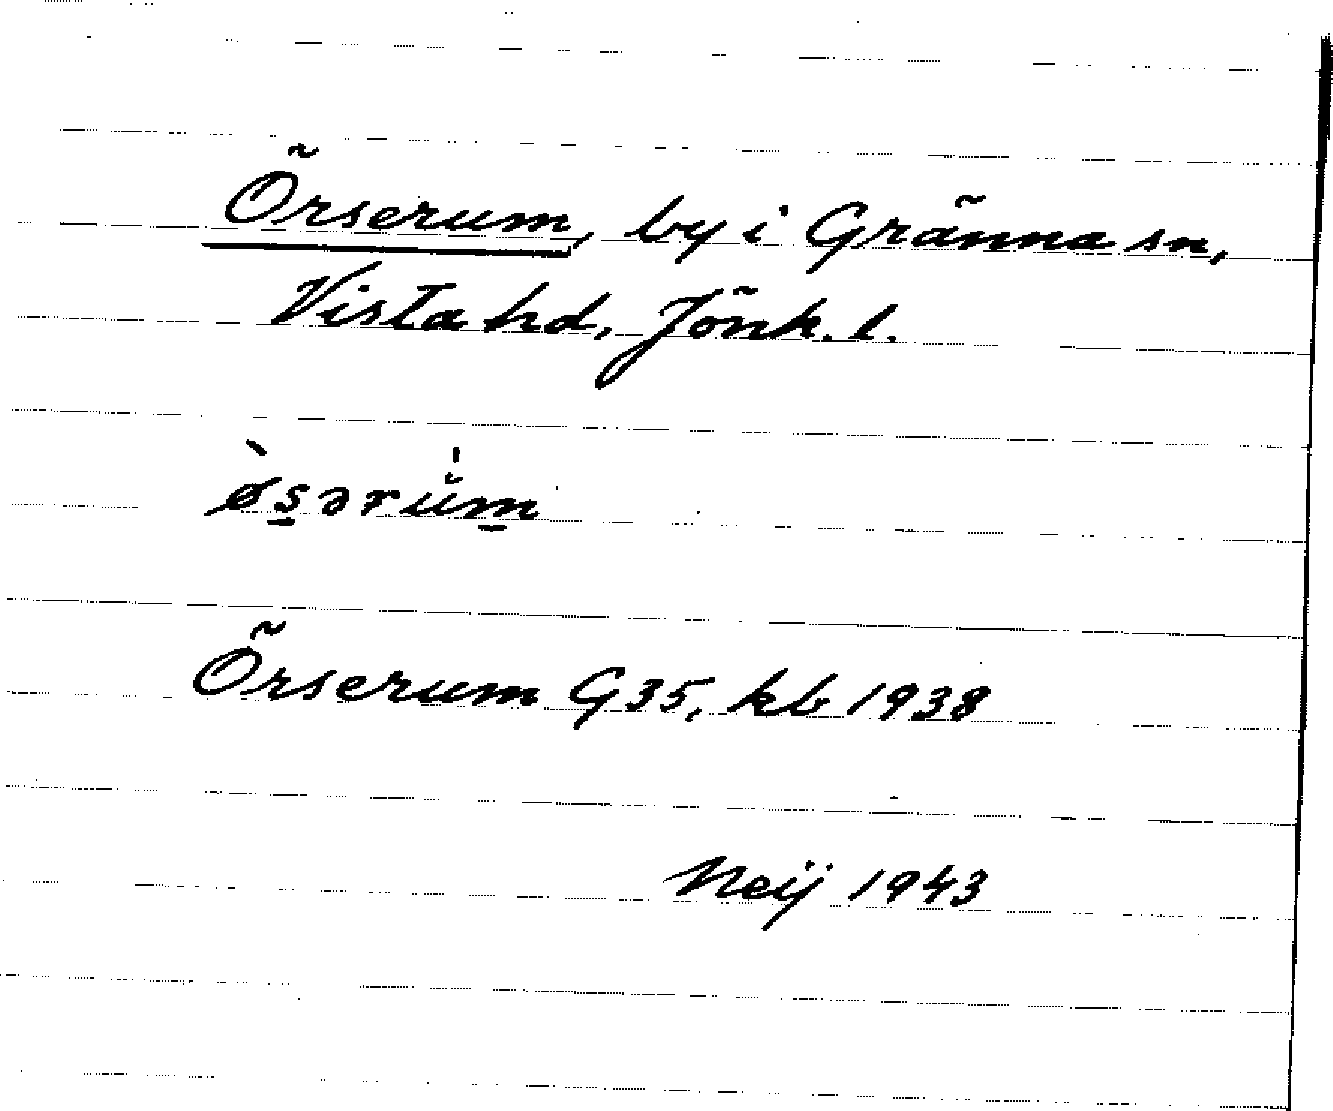 Örserum, by i Gränna sn,
Vista hd, Jönk. l.
ø̀s̱ərù̍m̱
Örserum G35, kb 1938
Neij 1943